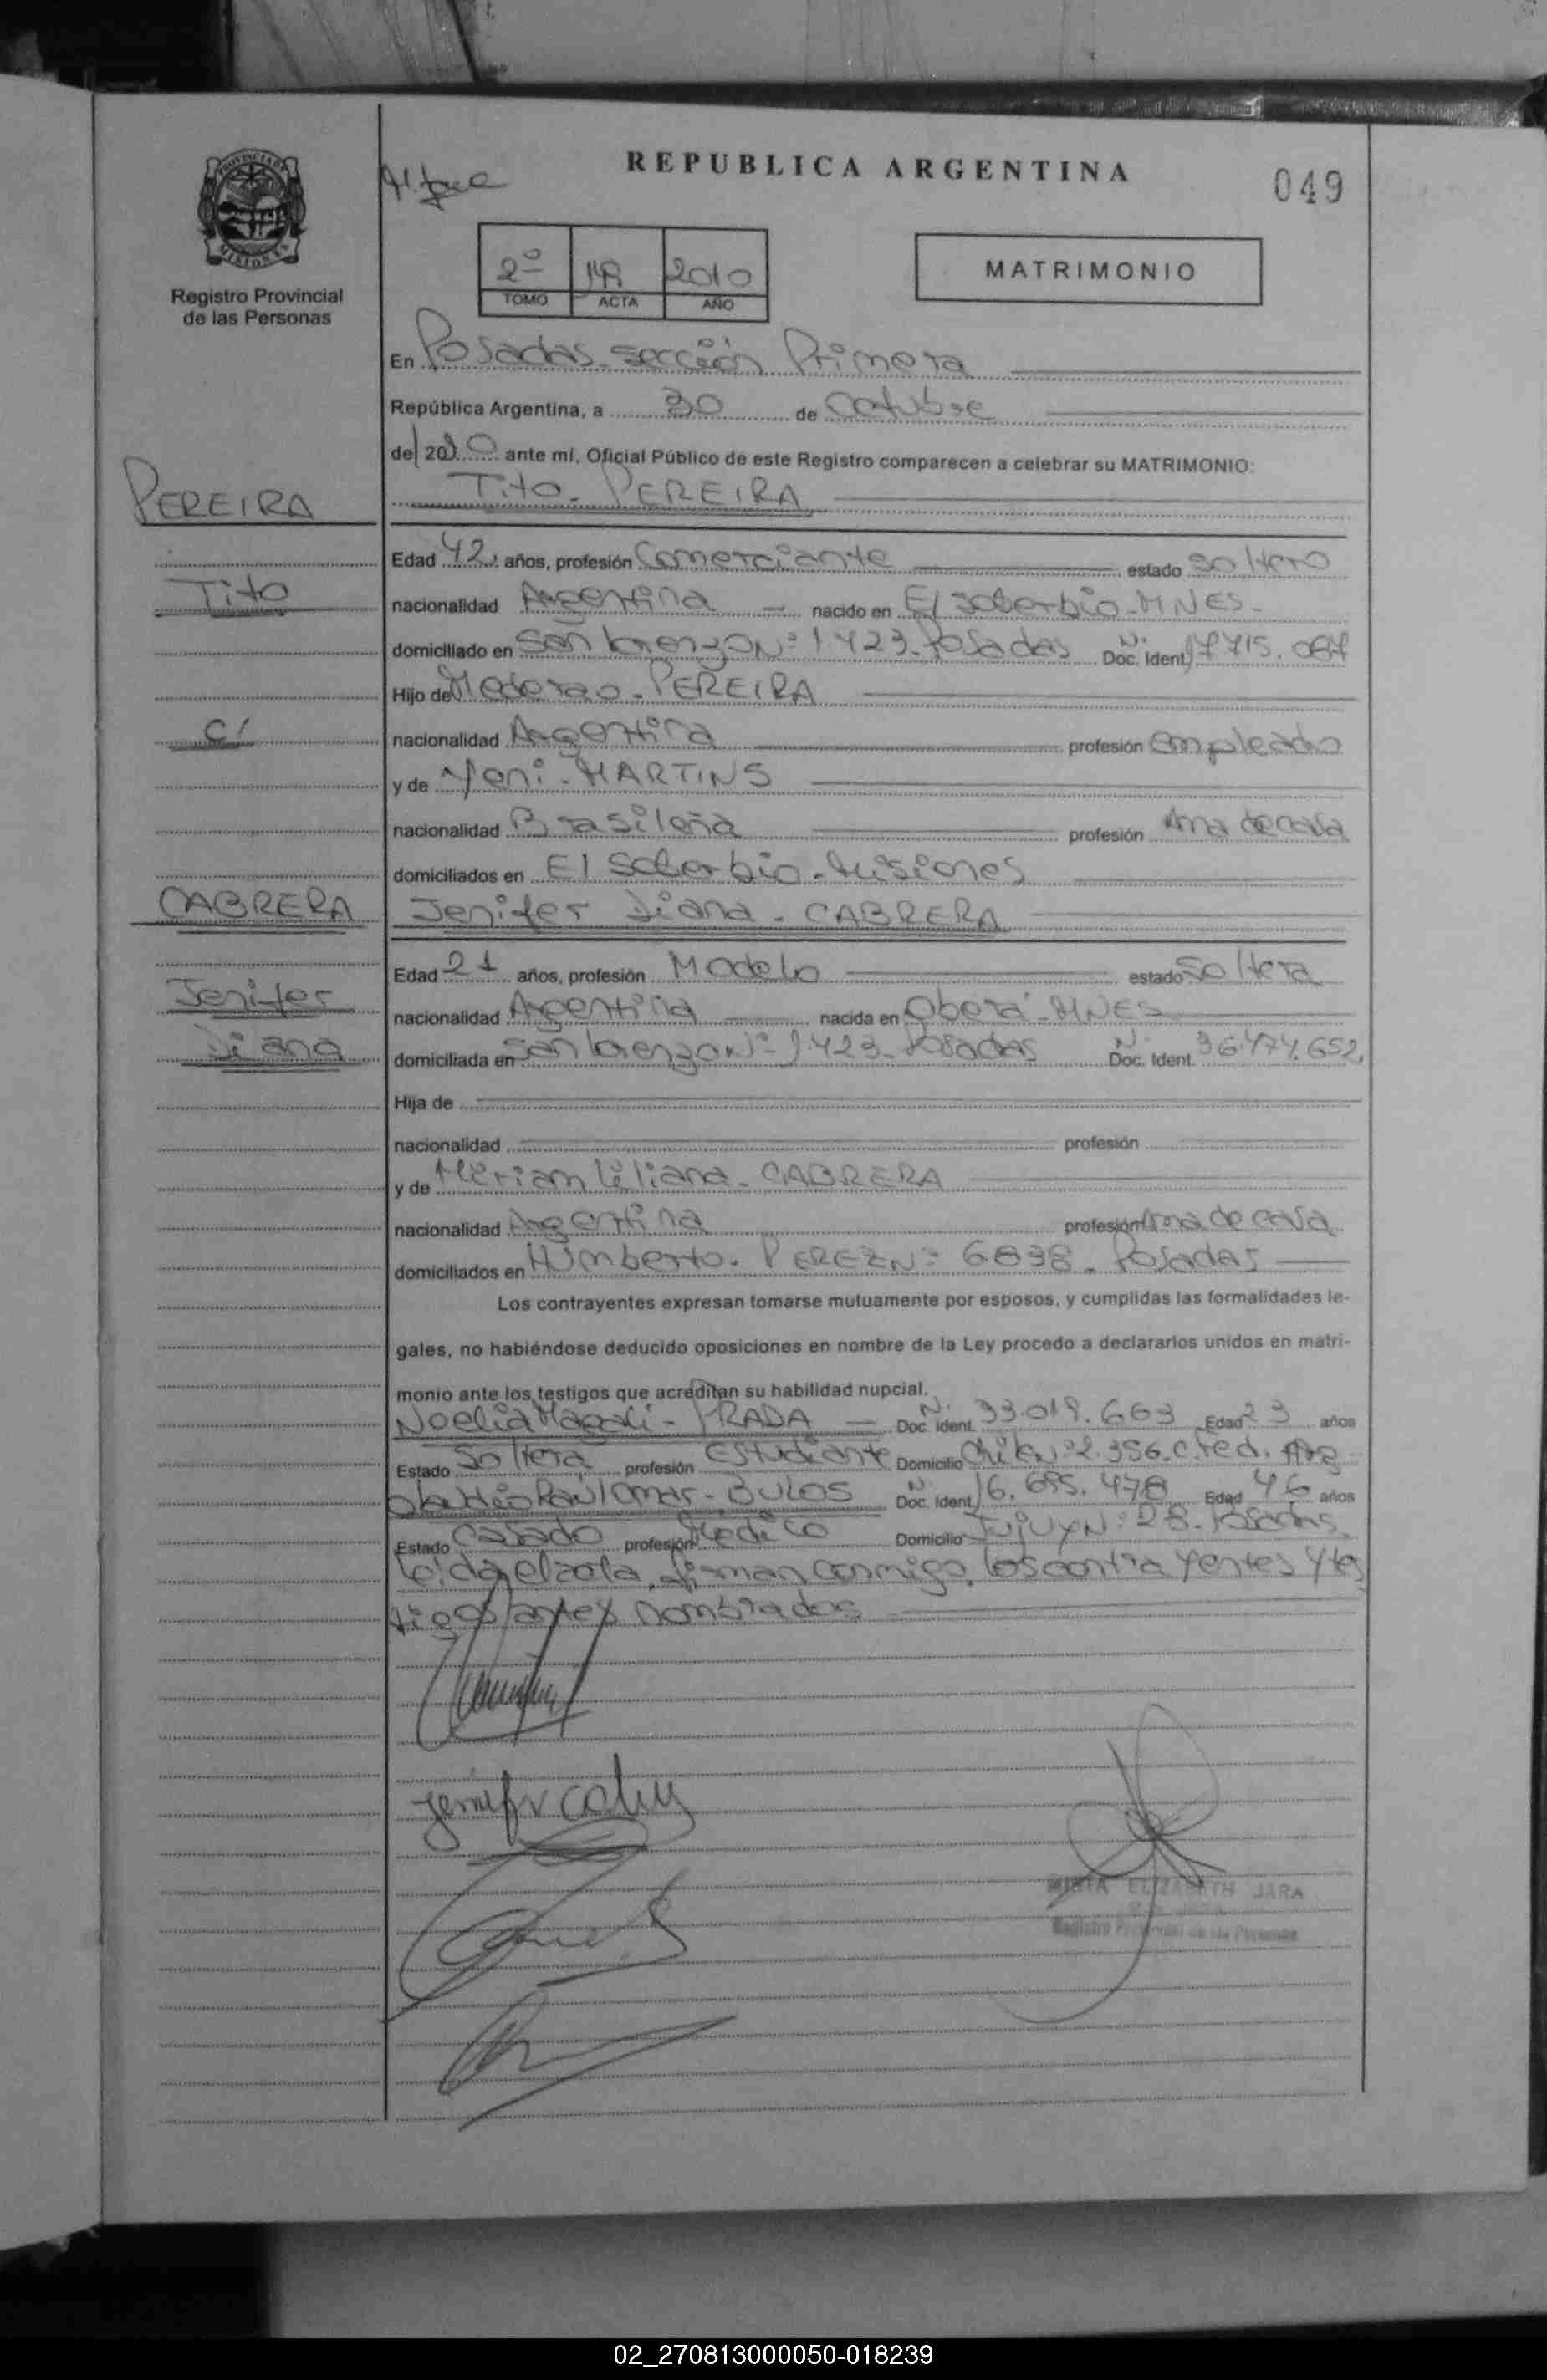 REPUBLICA ARGENTINA
049
PROVINCIA DE
MISIONES
Registro Provincial
de las Personas
2º 2010
TOMO ACTA AÑO
MATRIMONIO
En Posadas - sección Primera
República Argentina, a 30 de Octubre
del 2010 ante mí, Oficial Público de este Registro comparecen a celebrar su MATRIMONIO:
PEREIRA
Tito - PEREIRA
Edad 42 años, profesión Comerciante estado soltero
Tito
nacionalidad Argentina nacido en El soberbio - MNES.
domiciliado en San Lorenzo Nº 1423 - Posadas Doc. Ident. Nº
Hijo de PEREIRA
c/
nacionalidad Argentina profesión empleado
y de Yeni - MARTINS
nacionalidad Brasileña profesión Ama de casa
domiciliados en El Soberbio - Misiones
CABRERA
Jenifer Diana - CABRERA
Edad 21 años, profesión Modelo estado soltera
Jenifer
nacionalidad Argentina nacida en Oberá - MNES
Diana
domiciliada en San Lorenzo Nº 1423 - Posadas Doc. Ident. Nº 36.474.652
Hija de
nacionalidad profesión
y de Miriam Liliana - CABRERA
nacionalidad Argentina profesión Ama de casa
domiciliados en Humberto. PEREZ Nº 6838 - Posadas
Los contrayentes expresan tomarse mutuamente por esposos, y cumplidas las formalidades le-
gales, no habiéndose deducido oposiciones en nombre de la Ley procedo a declararlos unidos en matri-
monio ante los testigos que acreditan su habilidad nupcial.
Noelia Magali - PRADA Doc. Ident. Nº 33.019.663 Edad 23 años
Estado Soltera profesión Estudiante Domicilio Chile Nº 2.356. C. Fed. Arg
Raúl Omar - BULOS Doc. Ident. Nº 16.695.478 Edad 46 años
Estado Casado profesión Médico Domicilio Jujuy Nº 28. Posadas
Leída el acta, firman conmigo, los contrayentes y tes
tigos antes nombrados
Jenifer
MIRTA ELIZABETH JARA
Registro Provincial de las Personas
02_270813000050-018239